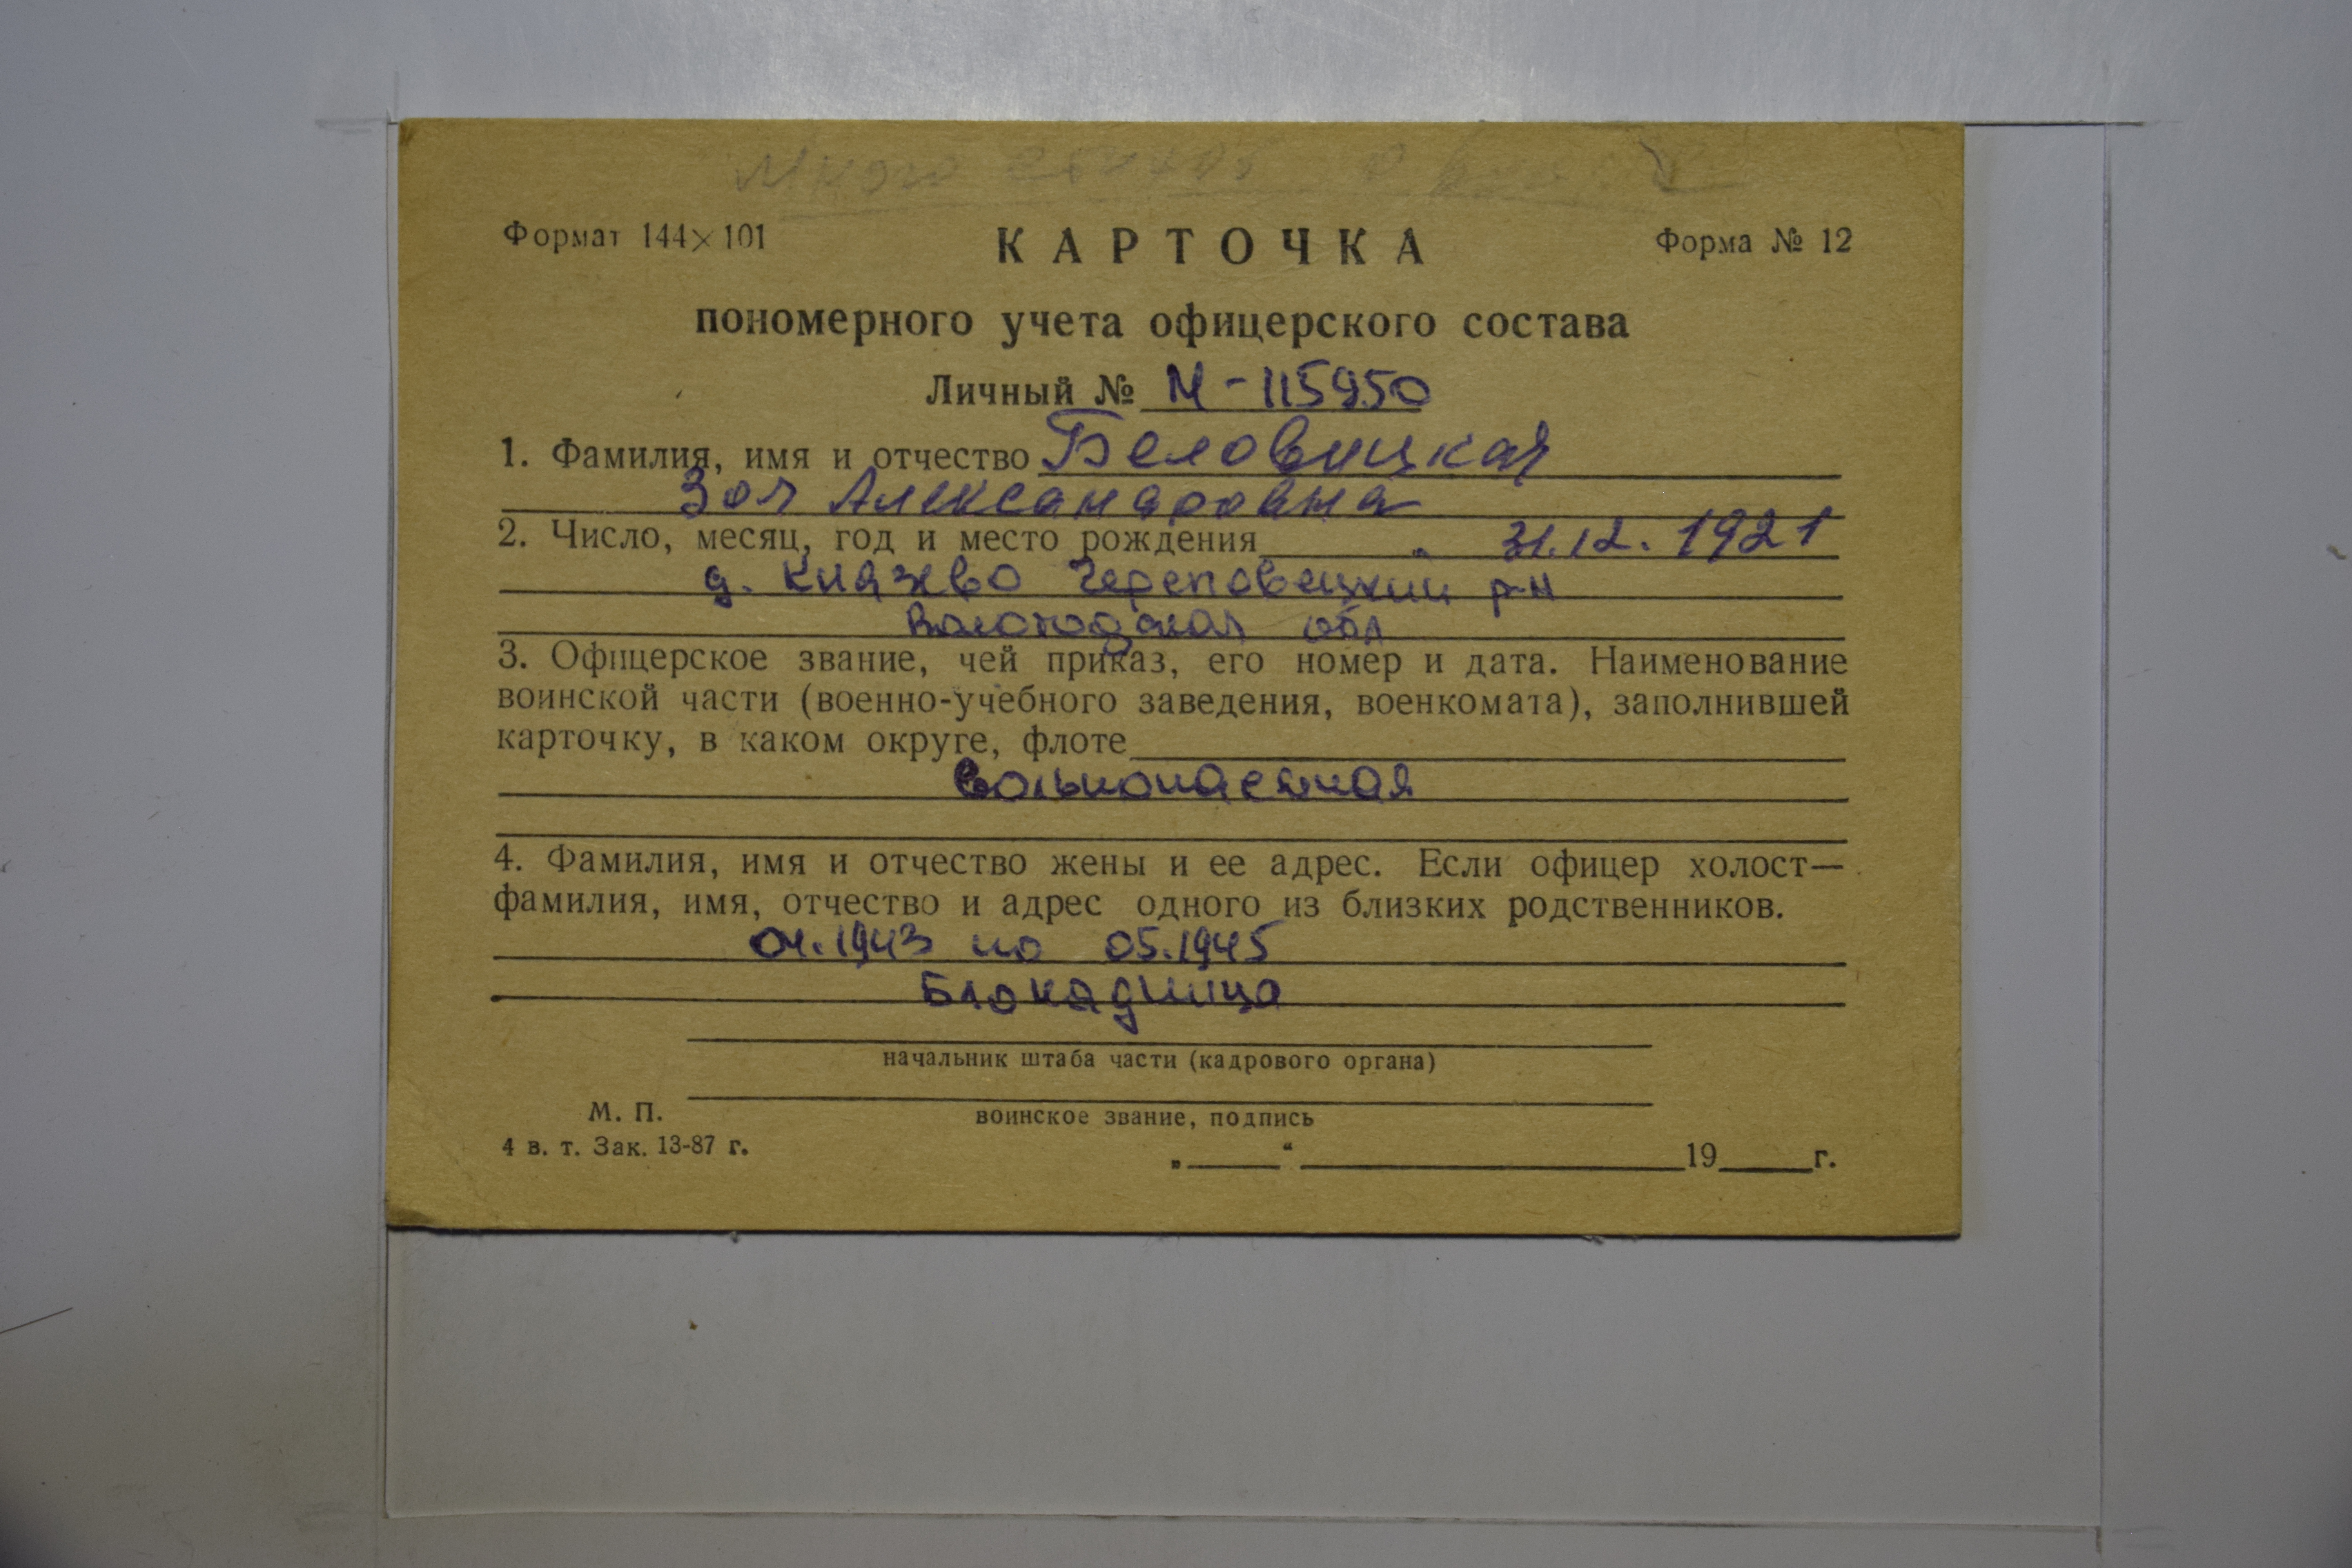 Формат 144×101
КАРТОЧКА
Форма № 12
пономерного учета офицерского состава
Личный № М-115950
1. Фамилия, имя и отчество Беловицкая
Зоя Александровна
2. Число, месяц, год и место рождения 31.12.1921
д. Князево Череповецкий р-н
Вологодская обл
3. Офицерское звание, чей приказ, его номер и дата. Наименование
воинской части (военно-учебного заведения, военкомата), заполнившей
карточку, в каком округе, флоте
вольнонаемная
4. Фамилия, имя и отчество жены и ее адрес. Если офицер холост—
фамилия, имя, отчество и адрес одного из близких родственников.
04.1943 по 05.1945
Блокадница
начальник штаба части (кадрового органа)
М. П.
воинское звание, подпись
4 в. т. Зак. 13-87 г.
„ “ 19 г.